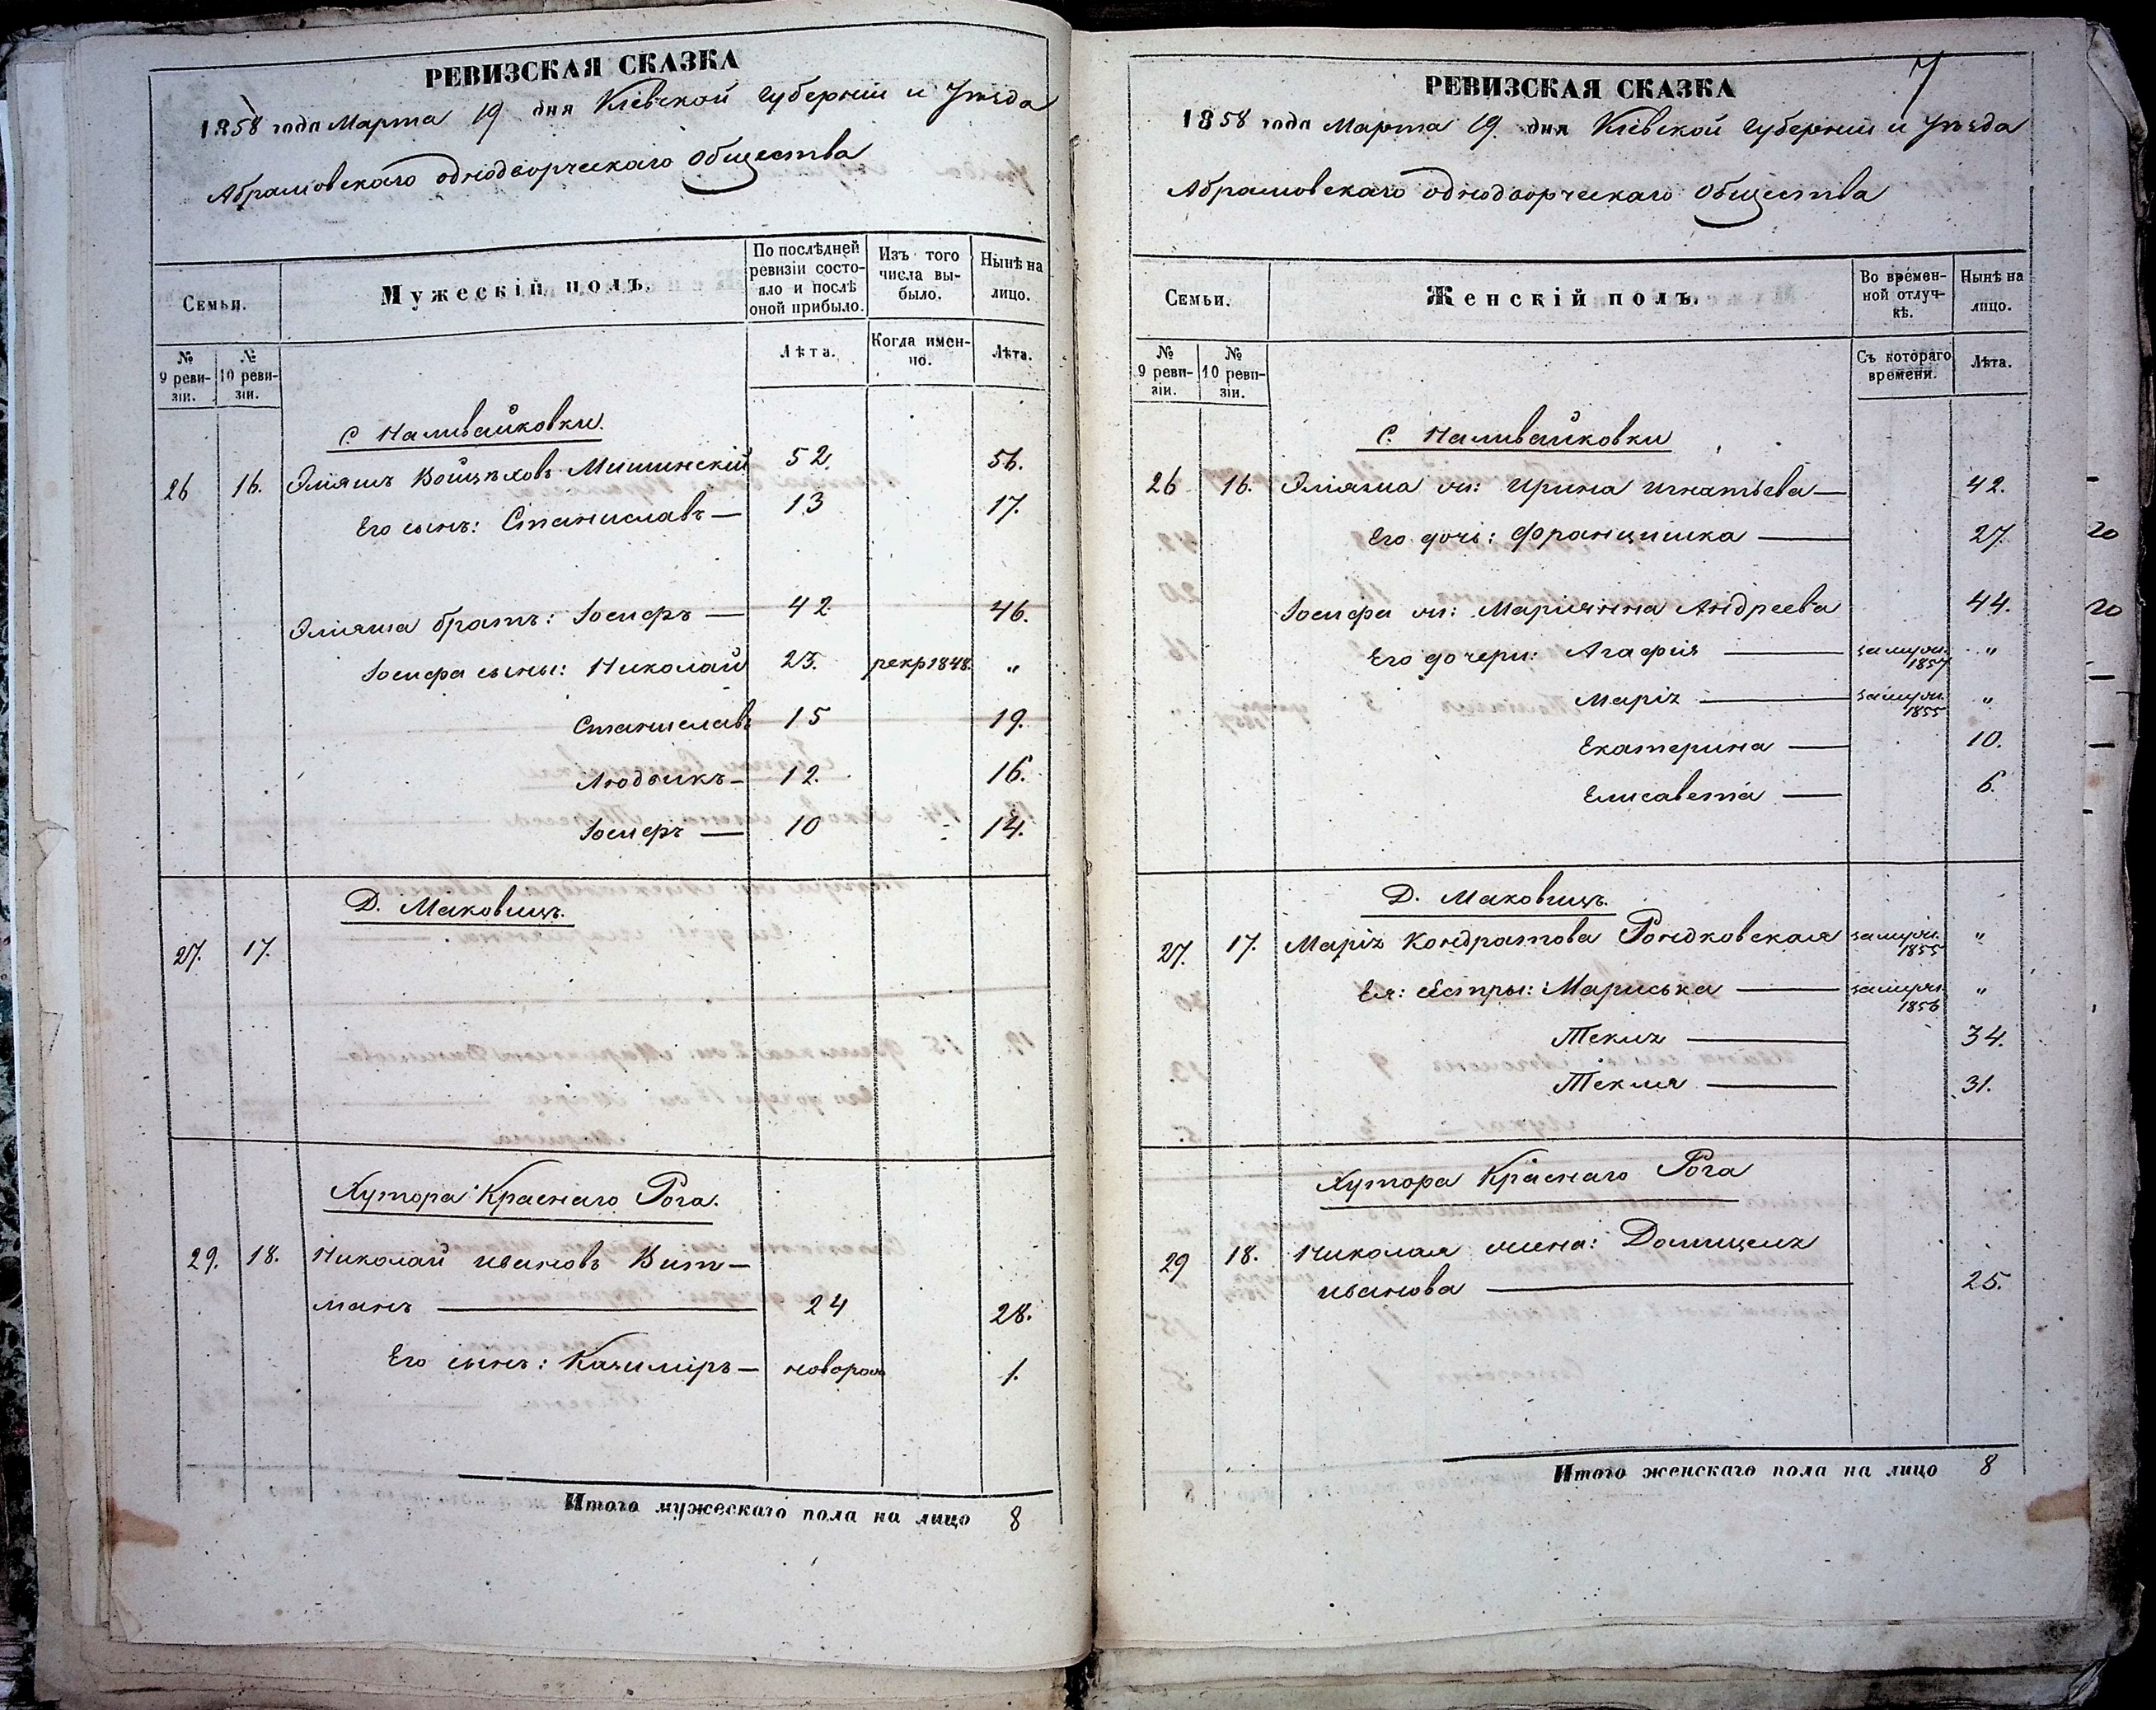 РЕВИЗСКАЯ СКАЗКА
1858 года Марта 19 дня Кіевской Губерніи и Уѣзда
Абрамовскаго однодворческаго Общества
Семьи.
Мужескій полъ.
По послѣдней ревизіи состояло и послѣ оной прибыло.
Изъ того числа выбыло.
Нынѣ на лицо.
№ 9 ревизіи.
№ 10 ревизіи.
Лѣта.
Когда именно.
Лѣта.
С. Наливайковки.
26 16. Эліяшъ Войцѣховъ Мишинскій 52. 56.
Его сынъ: Станиславъ — 13 17.
Эліяша братъ: Іосифъ — 42 46.
Іосифа сыны: Николай 23. рекр 1848. "
Станиславъ 15 19.
Людвикъ — 12. 16.
Іосифъ — 10 14.
Д. Маковищъ.
27. 17.
Хутора Краснаго Рога.
29. 18. Николай Ивановъ Вит-
манъ — 24 28.
Его сынъ: Казиміръ —новорож 1.
Итого мужескаго пола на лицо 8
7
РЕВИЗСКАЯ СКАЗКА
1858 года Марта 19. дня Кіевской Губерніи и Уѣзда
Абрамовскаго однодворческаго Общества
Семьи.
Женскій полъ.
Во временной отлучкѣ.
Нынѣ на лицо.
№ 9 ревизіи.
№ 10 ревизіи.
Съ котораго времени.
Лѣта.
С. Наливайковки
26 16. Эліяша ж: Ирина Игнатьева — 42.
Его дочь: Францишка — 27.
Іосифа ж: Маріянна Андреева 44.
Его дочери: Агафія — замуж. 1857 "
Марія — замуж. 1855 "
Екатерина — 10.
Елисавета — 6.
Д. Маковищъ.
27. 17. Марія Кондратова Рондковская замуж. 1855 "
Ея: сестры: Мариська — замуж. 1856 "
Текля — 34.
Текля — 31.
Хутора Краснаго Рога
29 18. Николая жена: Домицеля
Иванова — 25.
Итого женскаго пола на лицо 8